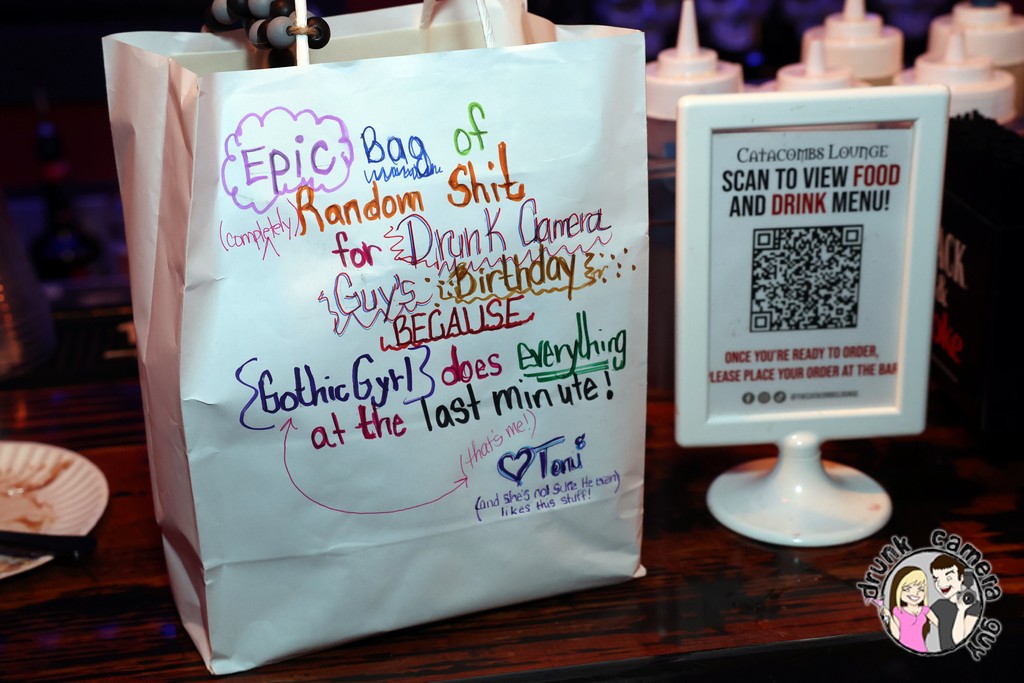 Epic Bag of
(completely) Random Shit
for Drunk Camera
Guy's Birthday
BECAUSE
{GothicGyrl} does everything
at the last minute!
(that's me!)
♡Toni
(and she's not sure He even
likes this stuff!)
CATACOMBS LOUNGE
SCAN TO VIEW FOOD
AND DRINK MENU!
ONCE YOU'RE READY TO ORDER,
LEASE PLACE YOUR ORDER AT THE BAR
drunk camera guy